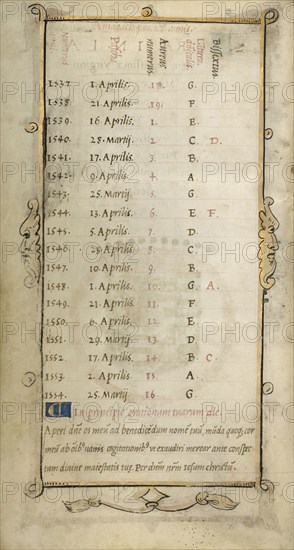 Pascha Aureus numerus. Littera Bissextus
1537 1. Aprilis. 18. G.
1538 21 Aprilis. 19. F
1539. 16 Aprilis. 1. E.
1540. 28. Martij. 2 C D.
1541. 17. Aprilis. 3. B.
1542. 9. Aprilis. 4. A
1543. 25. Martij. 5. G
1544. 13. Aprilis. 6. E F.
1545. 5. Aprilis. 7. D.
1546. 25 Aprilis. 8. C.
1547. 10. Aprilis. 9. B
1548. 1. Aprilis. 10. G. A.
1549. 21. Aprilis. 11. F
1550. 6. Aprilis. 12. E.
1551. 29. Martij. 13. D
1552. 17. Aprilis. 14. B C.
1553 2. Aprilis. 15. A.
1554. 25. Martij 16. G
In principio orationum tuarum dic.
Aperi dñe os meũ ad benedicẽdum nomẽ tuũ, mũda quoq; cor
meũ ab oĩbꝰ vanis cogitationibꝰ vt exaudiri merear ante conspec
tum diuine maiestatis tue. Per dñm nr̃m iesum christũ.